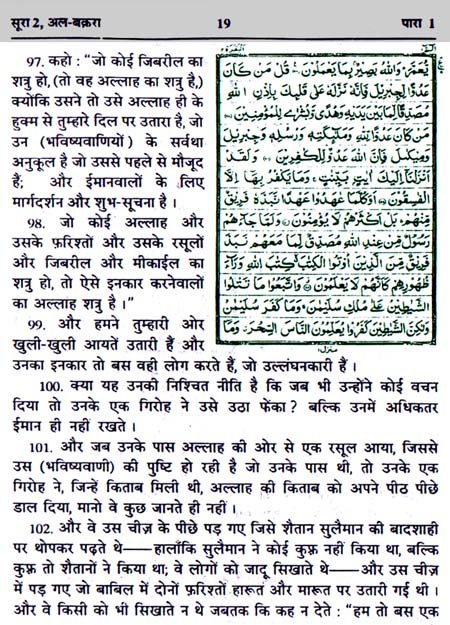 सूरा 2, अल-बक़रा 19 पारा 1
97. कहो : "जो कोई जिबरील का
शत्रु हो, (तो वह अल्लाह का शत्रु है,)
क्योंकि उसने तो उसे अल्लाह ही के
हुक्म से तुम्हारे दिल पर उतारा है, जो
उन (भविष्यवाणियों) के सर्वथा
अनुकूल है जो उससे पहले से मौजूद
हैं; और ईमानवालों के लिए
मार्गदर्शन और शुभ-सूचना है ।
98. जो कोई अल्लाह और
उसके फ़रिश्तों और उसके रसूलों
और जिबरील और मीकाईल का
शत्रु हो, तो ऐसे इनकार करनेवालों
का अल्लाह शत्रु है ।"
99. और हमने तुम्हारी ओर
खुली-खुली आयतें उतारी हैं और
يُعَمَّرَ وَاللهُ بَصِيْرٌ بِمَا يَعْمَلُوْنَ قُلْ مَنْ كَانَ
عَدُوًّا لِّجِبْرِيْلَ فَاِنَّهٗ نَزَّلَهٗ عَلٰى قَلْبِكَ بِاِذْنِ اللهِ
مُصَدِّقًا لِّمَا بَيْنَ يَدَيْهِ وَهُدًى وَّبُشْرٰى لِلْمُؤْمِنِيْنَ
مَنْ كَانَ عَدُوًّا لِّلّٰهِ وَمَلٰٓئِكَتِهٖ وَرُسُلِهٖ وَجِبْرِيْلَ
وَمِيْكٰىلَ فَاِنَّ اللهَ عَدُوٌّ لِّلْكٰفِرِيْنَ وَلَقَدْ
اَنْزَلْنَآ اِلَيْكَ اٰيٰتٍۭ بَيِّنٰتٍ وَمَا يَكْفُرُ بِهَآ اِلَّا
الْفٰسِقُوْنَ اَوَكُلَّمَا عٰهَدُوْا عَهْدًا نَّبَذَهٗ فَرِيْقٌ
مِّنْهُمْ بَلْ اَكْثَرُهُمْ لَا يُؤْمِنُوْنَ وَلَمَّا جَآءَهُمْ
رَسُوْلٌ مِّنْ عِنْدِ اللهِ مُصَدِّقٌ لِّمَا مَعَهُمْ نَبَذَ
فَرِيْقٌ مِّنَ الَّذِيْنَ اُوْتُوا الْكِتٰبَ كِتٰبَ اللهِ وَرَآءَ
ظُهُوْرِهِمْ كَاَنَّهُمْ لَا يَعْلَمُوْنَ وَاتَّبَعُوْا مَا تَتْلُوا
الشَّيٰطِيْنُ عَلٰى مُلْكِ سُلَيْمٰنَ وَمَا كَفَرَ سُلَيْمٰنُ
وَلٰكِنَّ الشَّيٰطِيْنَ كَفَرُوْا يُعَلِّمُوْنَ النَّاسَ السِّحْرَ وَمَآ
उनका इनकार तो बस वही लोग करते हैं, जो उल्लंघनकारी हैं ।
100. क्या यह उनकी निश्चित नीति है कि जब भी उन्होंने कोई वचन
दिया तो उनके एक गिरोह ने उसे उठा फेंका? बल्कि उनमें अधिकतर
ईमान ही नहीं रखते ।
101. और जब उनके पास अल्लाह की ओर से एक रसूल आया, जिससे
उस (भविष्यवाणी) की पुष्टि हो रही है जो उनके पास थी, तो उनके एक
गिरोह ने, जिन्हें किताब मिली थी, अल्लाह की किताब को अपने पीठ पीछे
डाल दिया, मानो वे कुछ जानते ही नहीं ।
102. और वे उस चीज़ के पीछे पड़ गए जिसे शैतान सुलैमान की बादशाही
पर थोपकर पढ़ते थे——हालाँकि सुलैमान ने कोई कुफ़्र नहीं किया था, बल्कि
कुफ़्र तो शैतानों ने किया था; वे लोगों को जादू सिखाते थे——और उस चीज़
में पड़ गए जो बाबिल में दोनों फ़रिश्तों हारूत और मारूत पर उतारी गई थी ।
और वे किसी को भी सिखाते न थे जबतक कि कह न देते : "हम तो बस एक